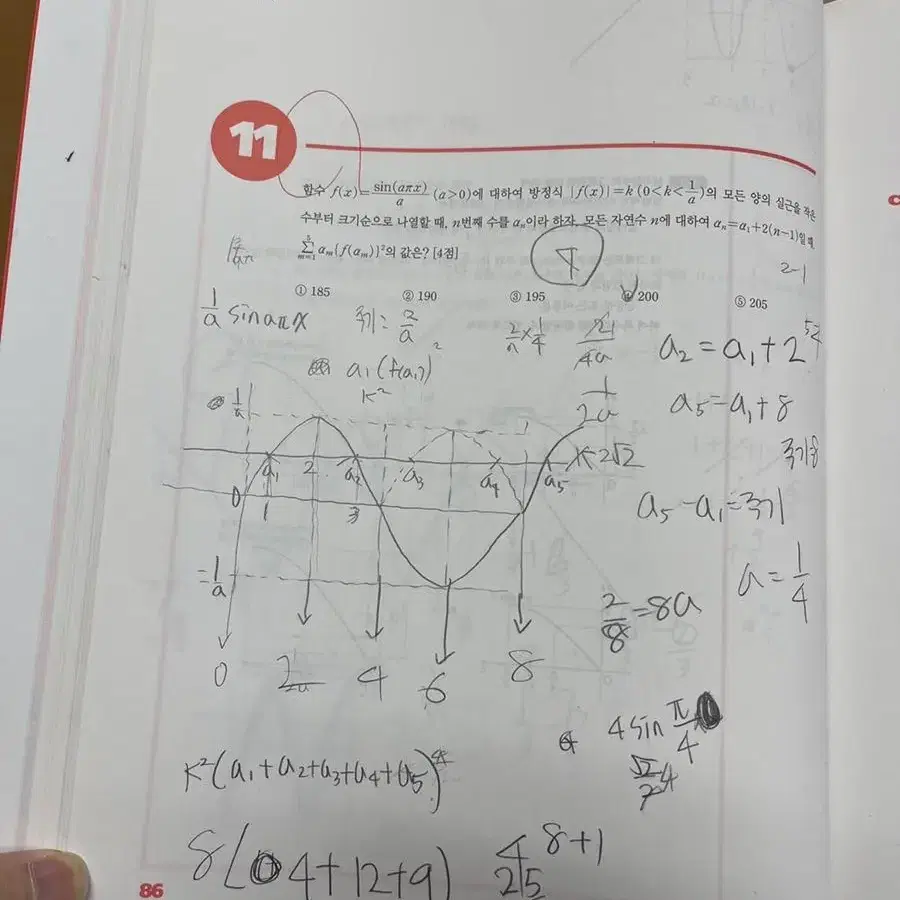 11
함수 f(x)=sin(aπx)/a (a>0)에 대하여 방정식 |f(x)|=k (0<k<1/a)의 모든 양의 실근을 작은
수부터 크기순으로 나열할 때, n번째 수를 aₙ이라 하자. 모든 자연수 n에 대하여 aₙ=a₁+2(n-1)일 때,
∑ₘ₌₁⁵ aₘ{f(aₘ)}²의 값은? [4점]
① 185 ② 190 ③ 195 ④ 200 ⑤ 205
2-1
1/a sin aπx 주기 = 2/a
a₁(f(a₁))
k²
2/4a
1/2a
a₂=a₁+2
a₅=a₁+8
주기 8
a₅-a₁=주기
a=1/4
1/a
a₁ 2 a₂ a₃ a₄ a₅ k=2√2
0 1 3
1/a
2/8=8a
0 2 4 6 8
4 sin π/4
√2/2 4
k²(a₁+a₂+a₃+a₄+a₅)
8(4+12+9) 8+1
25
86